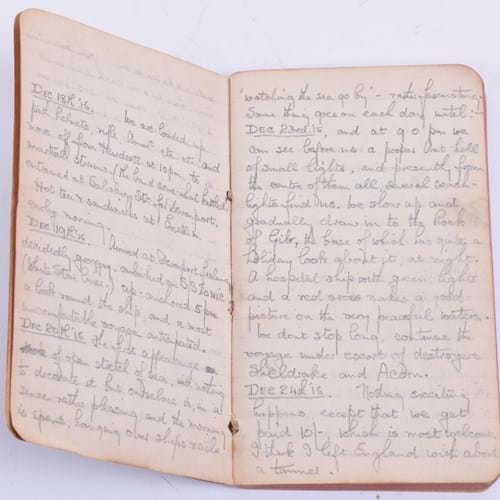 DEC 18th '15. We are loaded up
pith helmets, rifle Ammn etc etc, and
move off from Hurdcott at 10 pm to
martial strains, (the band somewhat bottled)
entrained at Salisbury Stn. for Devonport,
Hot tea & sandwiches at Exeter
early morning.
DEC 19th '15. Arrived at Devonport feeling
decidedly groggy, embarked on S.S. Ionic
(White Star Line.) up-anchored 5 pm
a look round the ship and a most
uncomfortable voyage anticipated.
DEC 20th '15. The first appearance
of open stretch of sea, with nothing
to decorate it but ourselves is, in a
sense rather pleasing, and the morning
is spent, hanging over ships rails
"watching the sea go by" - rather fascinating.
Same thing goes on each day until:-
DEC 23rd '15, and at 9.0 pm we
can see before us a proper ant hill
of small lights, and presently from
the centre of them all, several search-
lights find us. We slow up and
gradually draw in to the Rock
of Gib, the base of which has quite a
holiday look about it, at night.
A hospital ship with green lights
and a red cross makes a good
picture on the very peaceful waters.
We don't stop long, continue the
voyage under escort of destroyers
Sheldrake and Acorn.
DEC 24th '15. Nothing exciting
happens, except that we get
paid 10/-, which is most welcome,
I think I left England with about
a tanner.